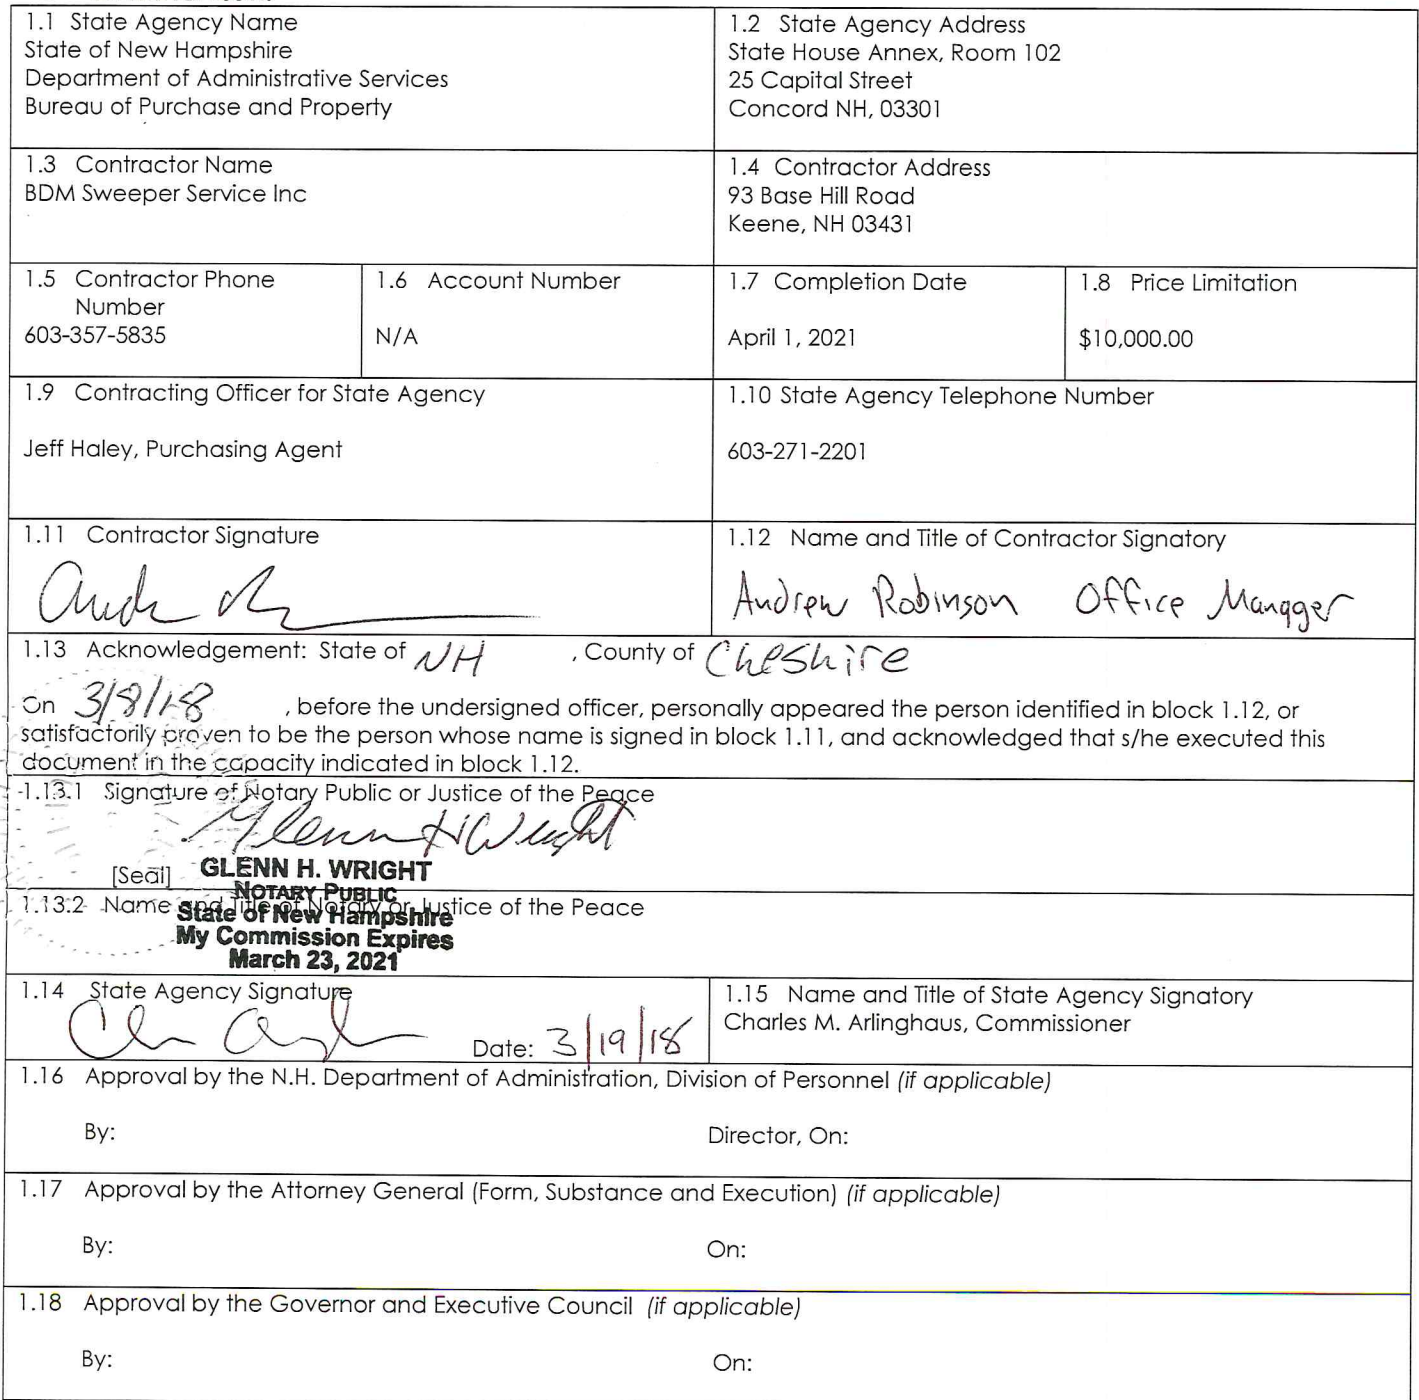 1.1 State Agency Name
State of New Hampshire
Department of Administrative Services
Bureau of Purchase and Property
1.2 State Agency Address
State House Annex, Room 102
25 Capital Street
Concord NH, 03301
1.3 Contractor Name
BDM Sweeper Service Inc
1.4 Contractor Address
93 Base Hill Road
Keene, NH 03431
1.5 Contractor Phone
Number
603-357-5835
1.6 Account Number
N/A
1.7 Completion Date
April 1, 2021
1.8 Price Limitation
$10,000.00
1.9 Contracting Officer for State Agency
Jeff Haley, Purchasing Agent
1.10 State Agency Telephone Number
603-271-2201
1.11 Contractor Signature
1.12 Name and Title of Contractor Signatory
Andrew Robinson Office Manager
1.13 Acknowledgement: State of NH , County of Cheshire
On 3/8/18 , before the undersigned officer, personally appeared the person identified in block 1.12, or
satisfactorily proven to be the person whose name is signed in block 1.11, and acknowledged that s/he executed this
document in the capacity indicated in block 1.12.
1.13.1 Signature of Notary Public or Justice of the Peace
Glenn H Wright
[Seal]
GLENN H. WRIGHT
NOTARY PUBLIC
1.13.2 Name and Title of Notary or Justice of the Peace
State of New Hampshire
My Commission Expires
March 23, 2021
1.14 State Agency Signature
Date: 3/19/18
1.15 Name and Title of State Agency Signatory
Charles M. Arlinghaus, Commissioner
1.16 Approval by the N.H. Department of Administration, Division of Personnel (if applicable)
By: Director, On:
1.17 Approval by the Attorney General (Form, Substance and Execution) (if applicable)
By: On:
1.18 Approval by the Governor and Executive Council (if applicable)
By: On: